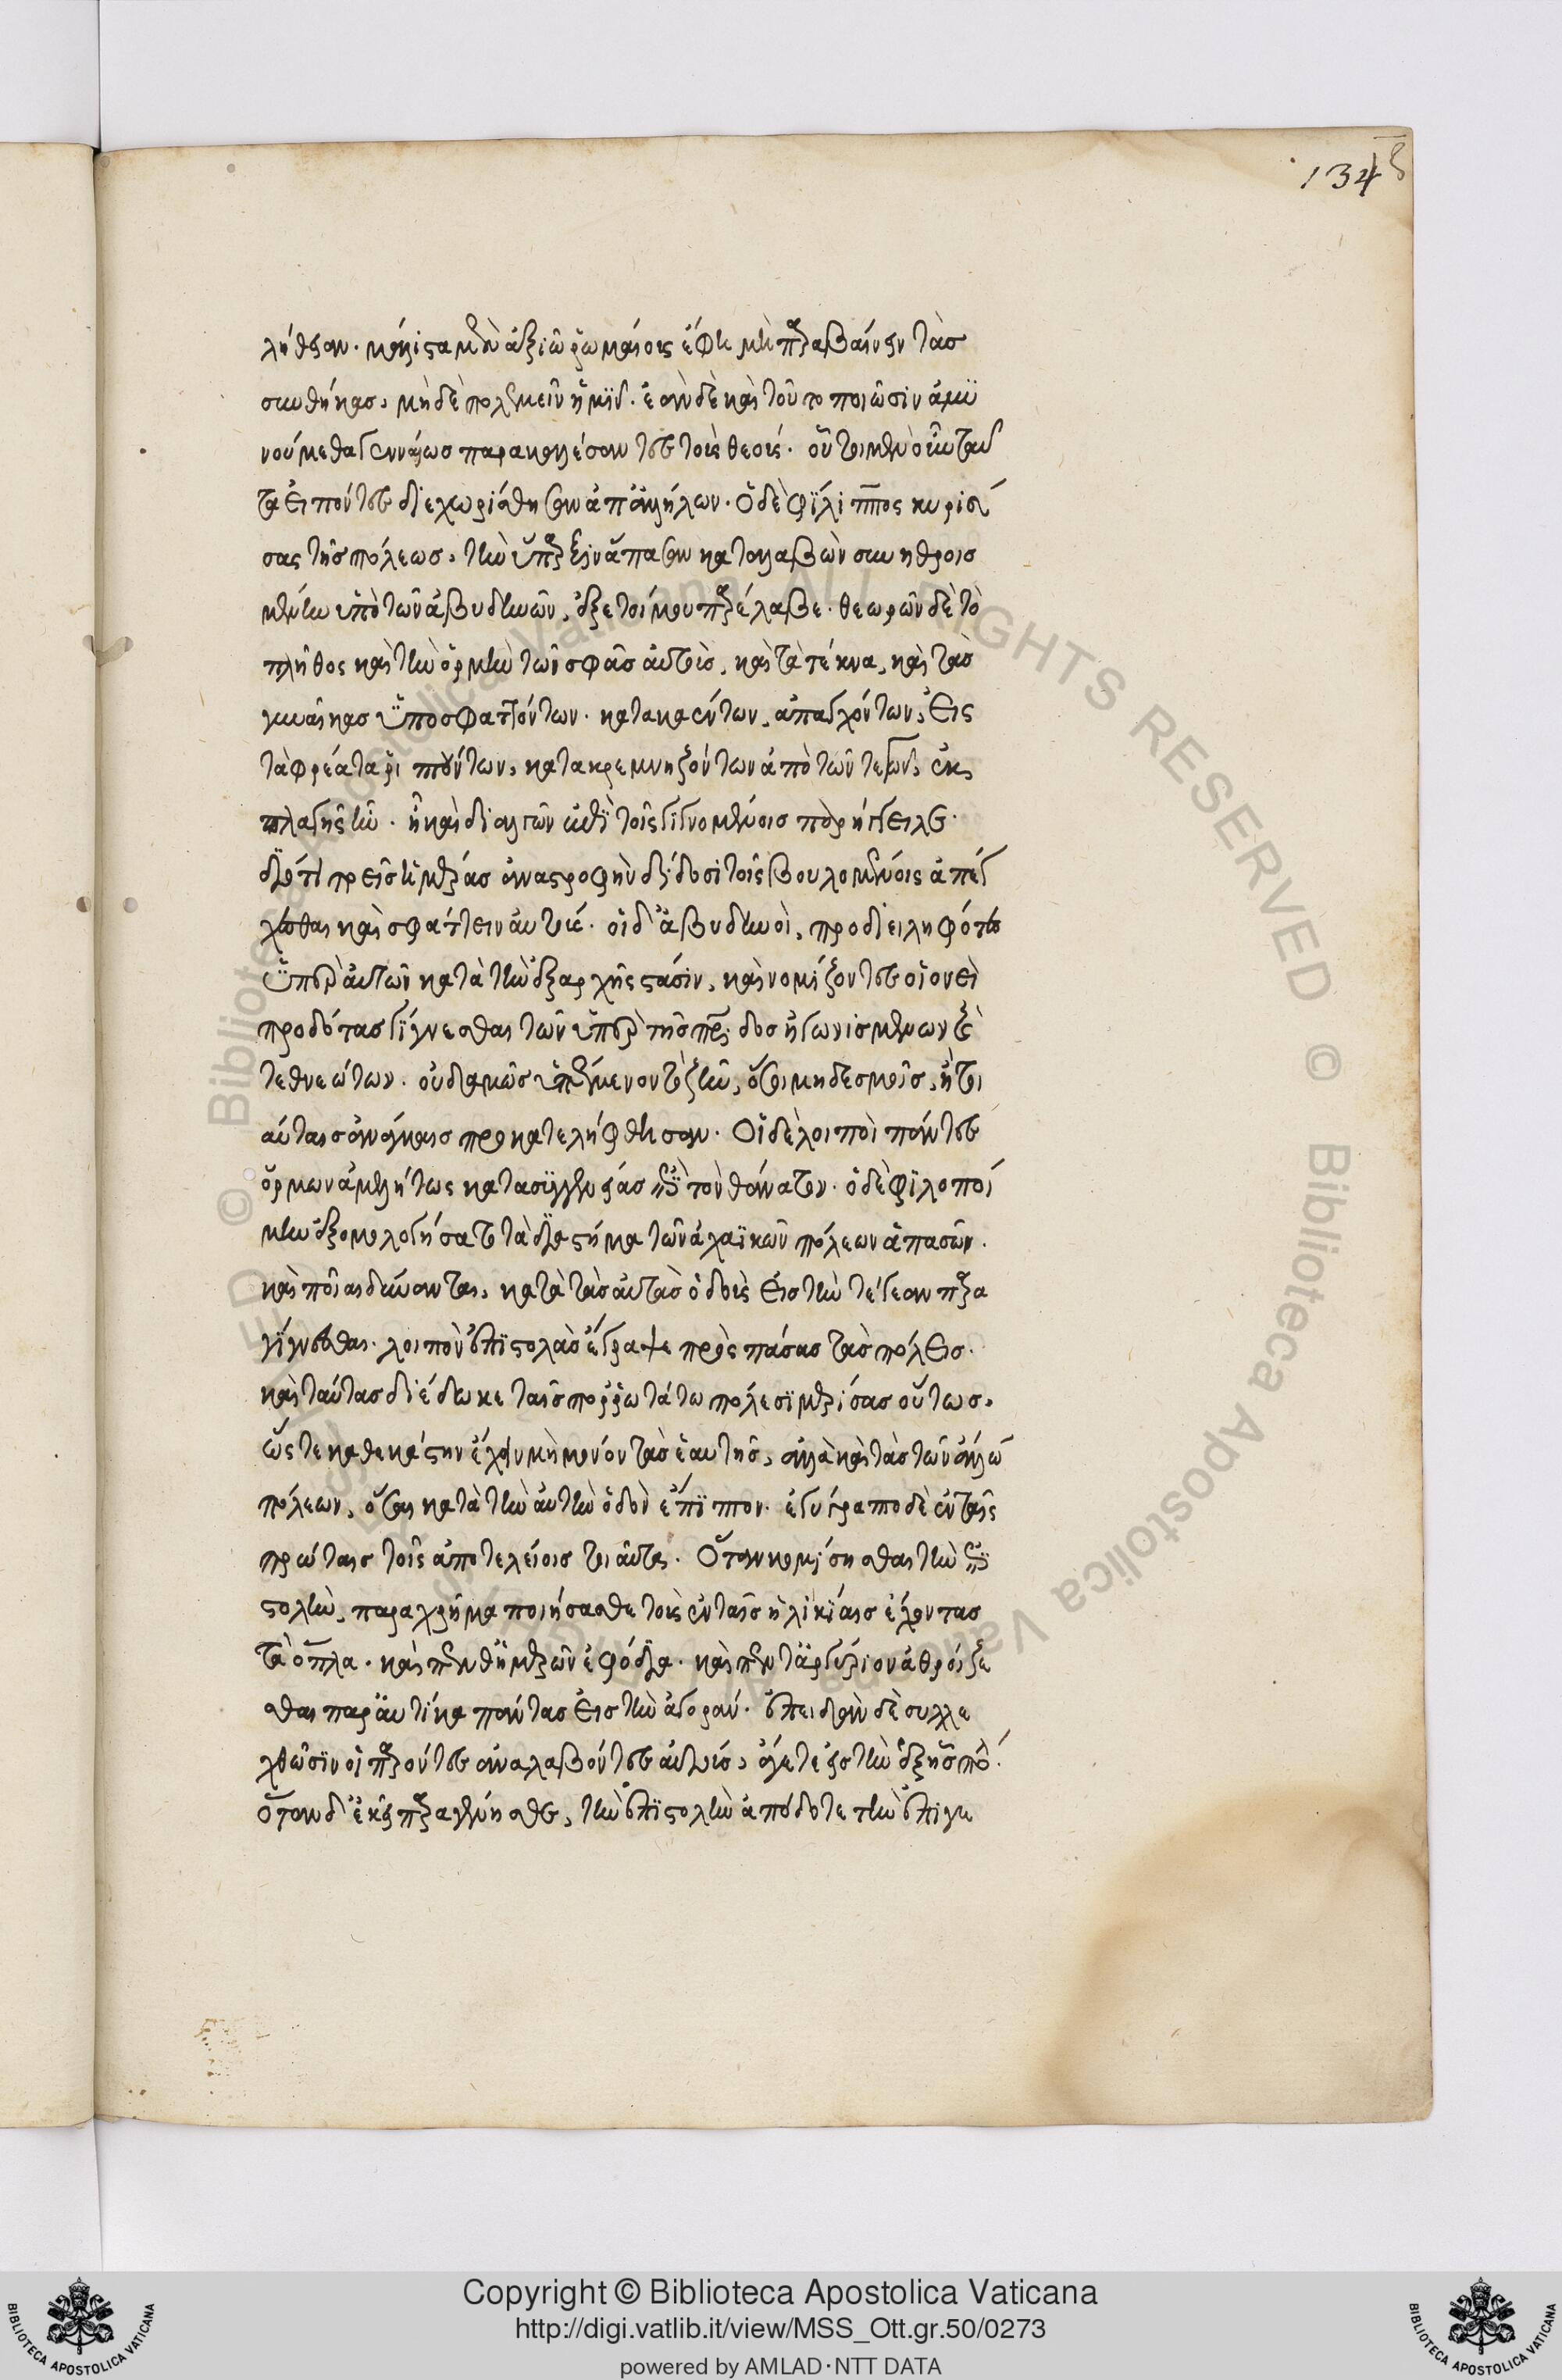 1348
λήθειαν. μάλιστα μὲν ἀξιῶ ῥωμαίους ἔφη μὴ παραβαίνειν τὰσ
συνθήκασ, μὴδὲ πολεμεῖν ἡμῖν. ἐὰν δὲ καὶ τοῦτο ποιῶσιν ἀμυ
νούμεθα γενναίωσ παρακαλέσαντες τοὺς θεούς. οὗτοι μὲν οὖν ταῦ
τα εἰπόντες διεχωρίσθησαν ἀπ ἀλλήλων. ὁ δὲ φίλιππος κυριεύ
σας τῆσ πόλεωσ, τὴν ὕπαρξιν ἅπασαν καταλαβὼν συνηθροισ
μένην ὑπὸ τῶν ἀβυδηνῶν, ἐξ ετοίμου παρέλαβε. θεωρῶν δὲ τὸ
πλῆθος καὶ τὴν ὁρμὴν τῶν σφᾶσ αὐτοὺσ, καὶ τὰ τέκνα, καὶ τὰσ
γυναῖκασ ὑποσφαττόντων. κατακαόντων, ἀπαγχόντων, εἰς
τὰ φρέατα ῥιπτούντων, κατακρεμνηζόντων ἀπὸ τῶν τεγῶν, ἐκ
πλαγὴς ἦν. ἦ καὶ διαλγῶν ἐπὶ τοῖς γιγνομένοισ παρήγγειλε.
διότι τρεῖσ ἡμέρασ ἀναστροφὴν δίδωσι τοῖς βουλομένοις ἀπάγ
χεσθαι καὶ σφάττειν αὐτούς. οἱ δ' ἀβυδηνοὶ, προδιειληφότες
ὑπὲρ αὐτῶν κατὰ τὴν ἐξαρχῆς στάσιν, καὶ νομίζοντες οἱονεὶ
προδότασ γίγνεσθαι τῶν ὑπὲρ τῆσ πατρίδοσ ἠγωνισμένων καὶ
τεθνεώτων. οὐδαμῶσ ὑπέμενον τὸ ζῆν, ὅσοι μὴ δεσμοῖσ, ἢ τοι
αύταισ ἀνάγκαισ προκατελήφθησαν. οἱ δὲ λοιποὶ πάντες
ὥρμων ἀμελλήτως κατὰ συγγενείασ ἐπὶ τὸν θάνατον. ὁ δὲ φιλοποί
μην ἐξομολογήσατο τὰ διαστήματα τῶν ἀχαϊκῶν πόλεων ἁπασῶν.
καὶ ποῖαι δύνανται, κατὰ τὰσ αὐτὰσ ὁδοὺς εἰσ τὴν τέγεαν παρα
γίγνεσθαι. λοιπὸν ἐπιστολὰσ ἔγραψε πρὸς πάσασ τὰσ πόλεισ.
καὶ ταύτασ διέδωκε ταῖσ πορρωτάτω πόλεσι μερίσασ οὕτωσ,
ὥστε καθ εκάστην ἔχειν μὴ μόνον τὰσ ἑαυτῆσ, ἀλλὰ καὶ τὰσ τῶν ἄλλων
πόλεων, ὅσαι κατὰ τὴν αὐτὴν ὁδὸν ἔπιπτον. ἐγέγραπτο δὲ ἐν ταῖς
πρώταισ τοῖς ἀποτελείοισ τοιαῦτα. ὅταν κομίσησθαι τὴν ἐπι
στολὴν, παραχρῆμα ποιήσασθε τοὺς ἐν ταῖσ ἡλικίαισ ἔχοντασ
τὰ ὅπλα. καὶ πένθ ἡμερῶν ἐφόδια. καὶ πέντ ἀργύριον ἀθροίζε
σθαι παραυτίκα πάντασ εἰσ τὴν ἀγοράν. ἐπειδὰν δὲ συλλε
χθῶσιν οἱ παρόντες ἀναλαβόντες αὐτοὺσ, ἄγετε εἰσ τὴν ἑξῆσ πό.
ὅταν δ' ἐκεῖ παραγένησθε, τὴν ἐπιστολὴν ἀπόδοτε τὴν ἐπιγε
Copyright © Biblioteca Apostolica Vaticana
http://digi.vatlib.it/view/MSS_Ott.gr.50/0273
powered by AMLAD·NTT DATA